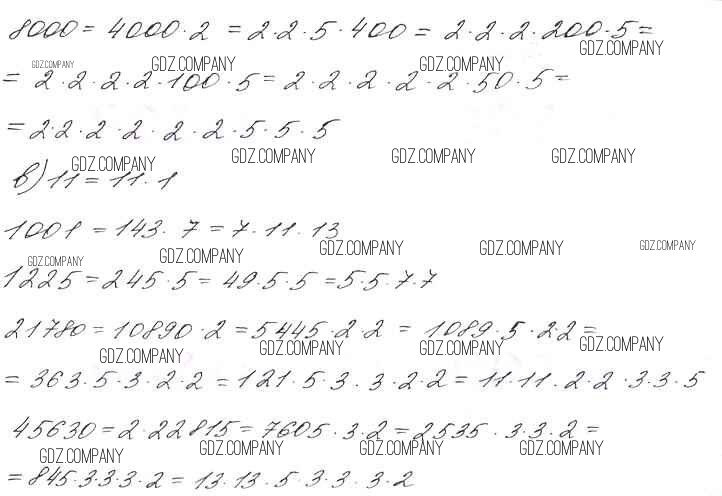 8000 = 4000 · 2 = 2 · 2 · 5 · 400 = 2 · 2 · 2 · 200 · 5 =
GDZ.COMPANY
GDZ.COMPANY GDZ.COMPANY GDZ.COMPANY
= 2 · 2 · 2 · 2 · 100 · 5 = 2 · 2 · 2 · 2 · 2 · 50 · 5 =
= 2 · 2 · 2 · 2 · 2 · 2 · 5 · 5 · 5
GDZ.COMPANY GDZ.COMPANY GDZ.COMPANY GDZ.COMPANY
в) 11 = 11 · 1
1001 = 143 · 7 = 7 · 11 · 13
GDZ.COMPANY GDZ.COMPANY GDZ.COMPANY GDZ.COMPANY GDZ.COMPANY
1225 = 245 · 5 = 49 · 5 · 5 = 5 · 5 · 7 · 7
21780 = 10890 · 2 = 5445 · 2 · 2 = 1089 · 5 · 2 · 2 =
GDZ.COMPANY GDZ.COMPANY GDZ.COMPANY GDZ.COMPANY
= 363 · 5 · 3 · 2 · 2 = 121 · 5 · 3 · 3 · 2 · 2 = 11 · 11 · 2 · 2 · 3 · 3 · 5
45630 = 2 · 22815 = 7605 · 3 · 2 = 2535 · 3 · 3 · 2 =
GDZ.COMPANY GDZ.COMPANY GDZ.COMPANY GDZ.COMPANY
= 845 · 3 · 3 · 3 · 2 = 13 · 13 · 5 · 3 · 3 · 3 · 2